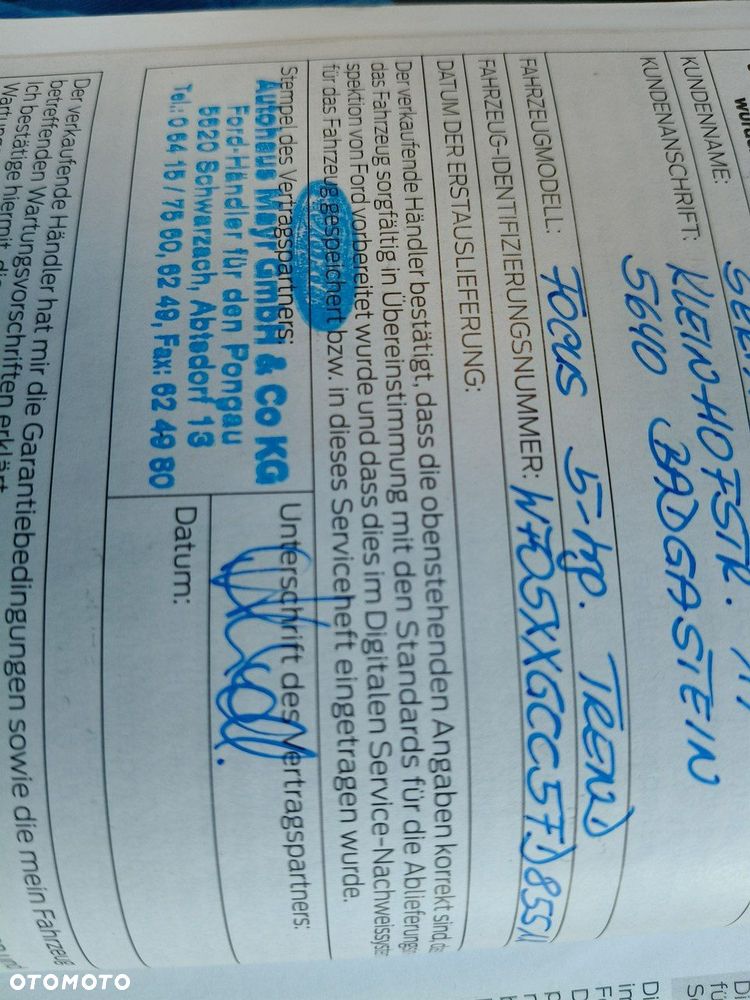 KUNDENNAME:
KUNDENANSCHRIFT: KLEIN-HOFSTR.
5640 BADGASTEIN
FAHRZEUGMODELL: FOCUS 5-trg. TREND
FAHRZEUG-IDENTIFIZIERUNGSNUMMER: WF05XXGCC5FD855
DATUM DER ERSTAUSLIEFERUNG:
Der verkaufende Händler bestätigt, dass die obenstehenden Angaben korrekt sind,
das Fahrzeug sorgfältig in Übereinstimmung mit den Standards für die Ablieferungs
spektion von Ford vorbereitet wurde und dass dies im Digitalen Service-Nachweissyste
für das Fahrzeug gespeichert bzw. in dieses Serviceheft eingetragen wurde.
Stempel des Vertragspartners:
Autohaus Mayr GmbH & Co KG
Ford-Händler für den Pongau
5620 Schwarzach, Abtsdorf 13
Tel.: 0 64 15 / 75 60, 62 49, Fax: 62 49 80
Unterschrift des Vertragspartners:
Datum:
Der verkaufende Händler hat mir die Garantiebedingungen sowie die mein Fahrzeug
betreffenden Wartungsvorschriften erklärt.
Ich bestätige hiermit,
OTOMOTO